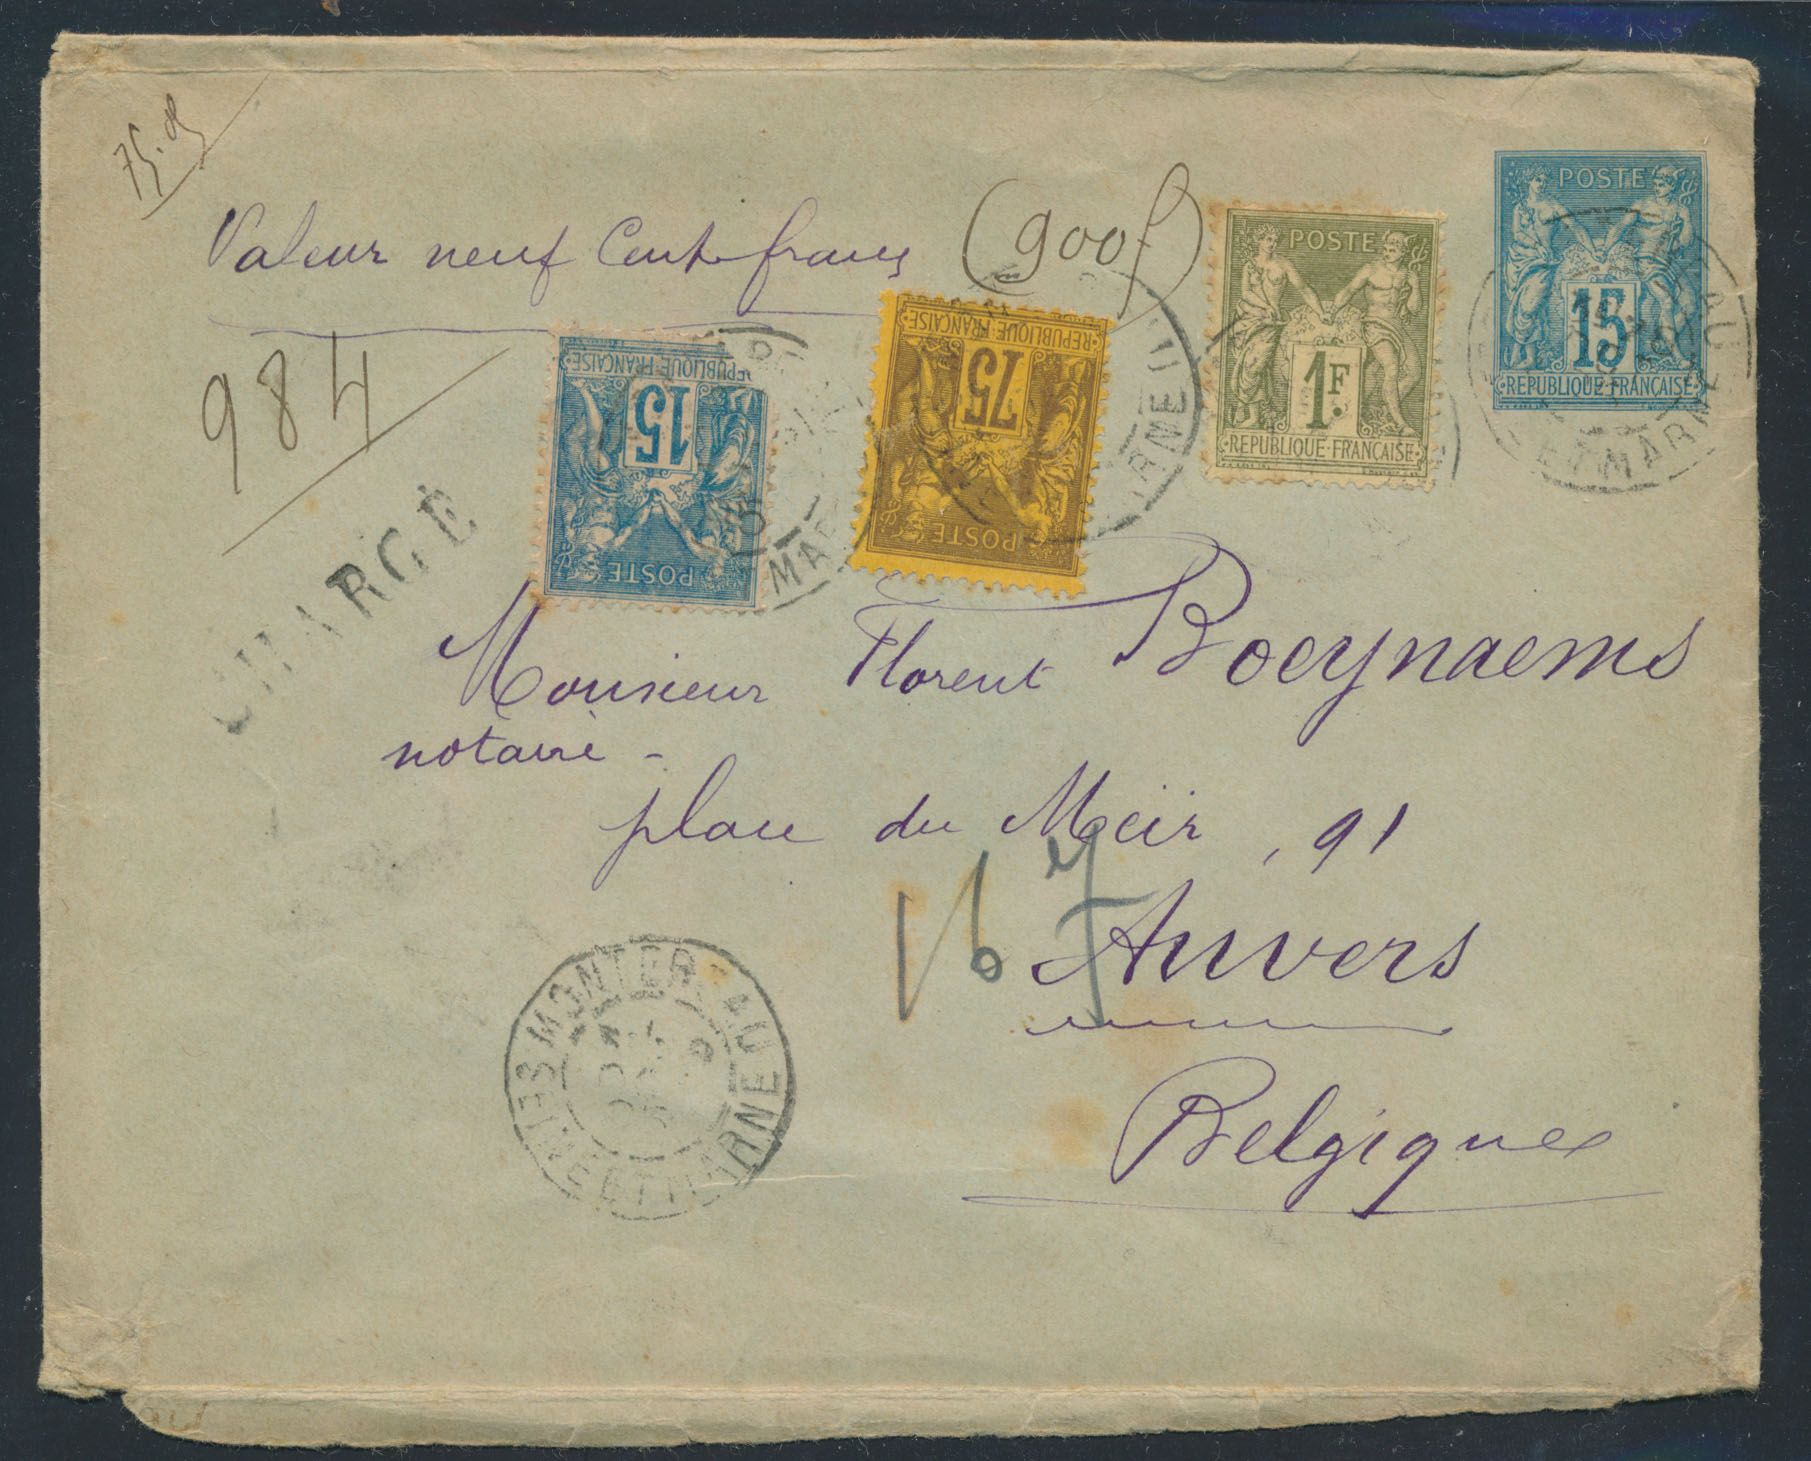 Valeur neuf Cent francs (900f)
984
CHARGÉ
POSTE
15
REPUBLIQUE FRANÇAISE
POSTE
1F.
REPUBLIQUE FRANÇAISE
REPUBLIQUE FRANÇAISE
75
POSTE
REPUBLIQUE FRANÇAISE
15
POSTE
Monsieur Florent Boeynaems
notaire -
place du Meïr, 91
Anvers
Belgique
MONTEREAU
SEINE ET MARNE